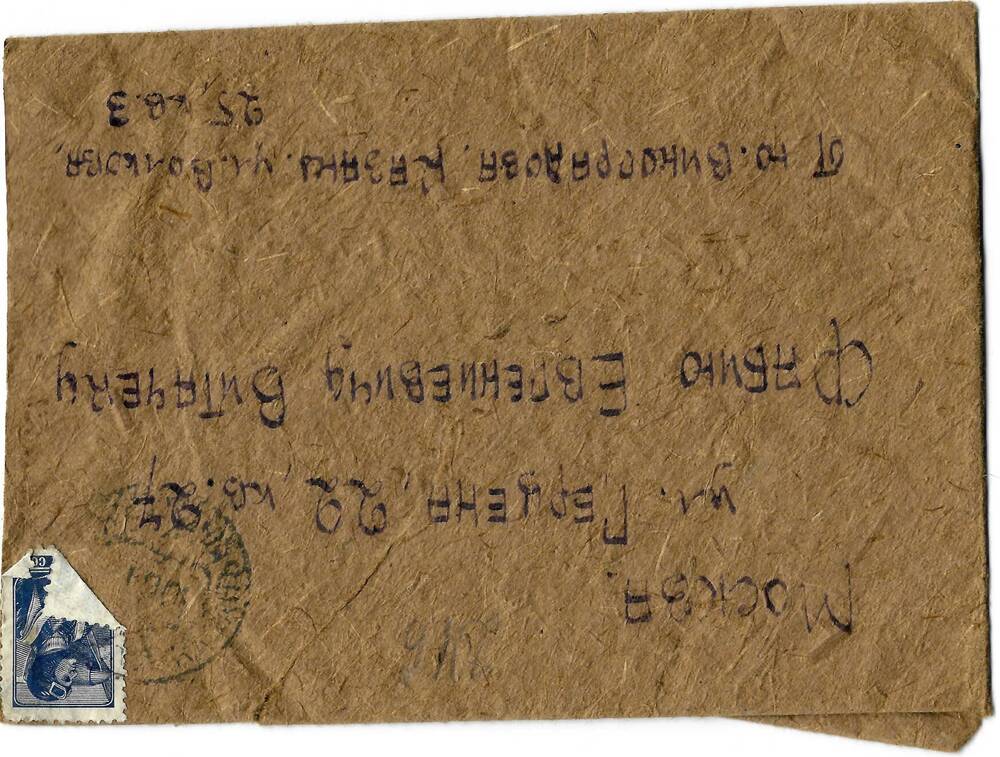 Москва.
ул. Герцена, 22, кв. 27
Фабию Евгениевичу Витачеку
от Ю. Виноградова, Казань. ул. Волкова,
25, кв. 3